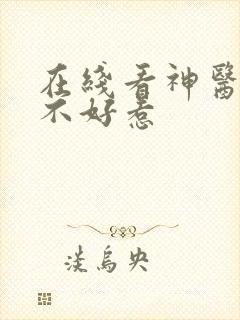 在綫看神醫
不好惹
淡烏央